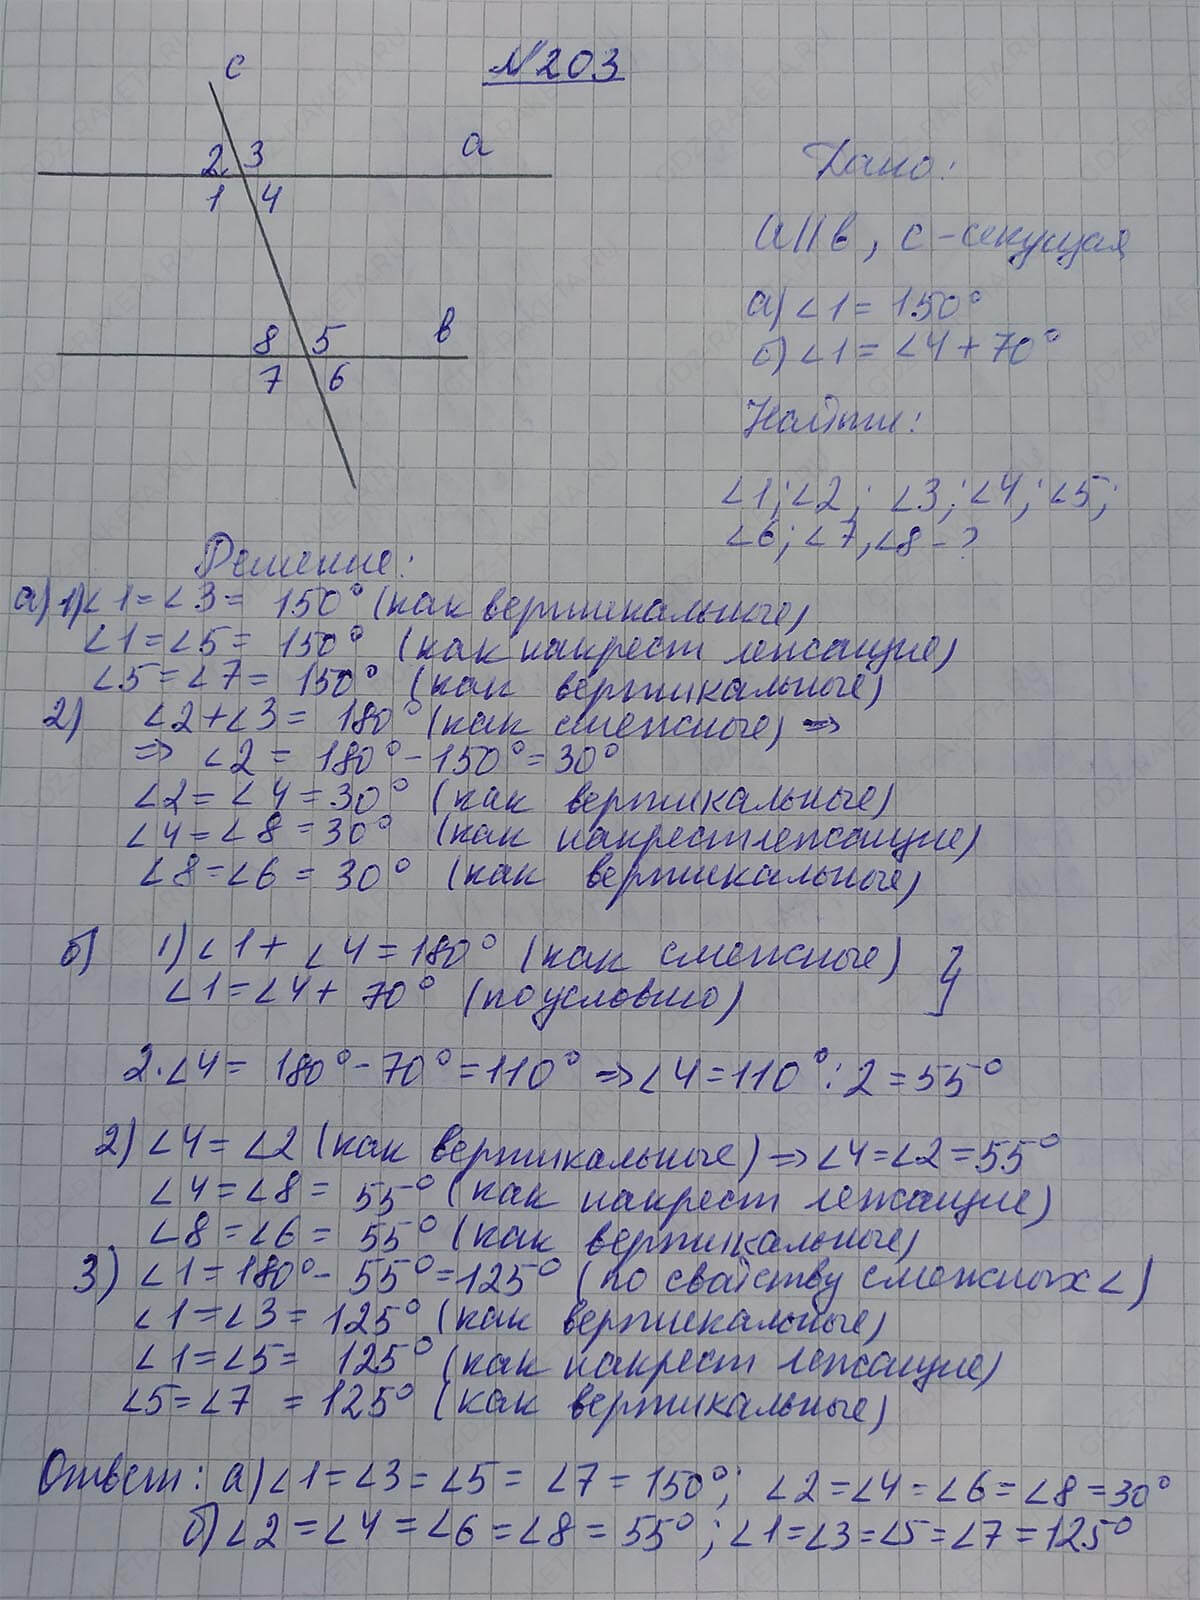 №203
c
2 3
a
1 4
8 5
в
7 6
Дано:
a||в, c-секущая
а) ∠1 = 150°
б) ∠1 = ∠4 + 70°
Найти:
∠1; ∠2; ∠3; ∠4; ∠5;
∠6; ∠7, ∠8 - ?
Решение:
а) 1) ∠1 = ∠3 = 150° (как вертикальные)
∠1 = ∠5 = 150° (как накрест лежащие)
∠5 = ∠7 = 150° (как вертикальные)
2) ∠2 + ∠3 = 180° (как смежные) =>
=> ∠2 = 180° - 150° = 30°
∠2 = ∠4 = 30° (как вертикальные)
∠4 = ∠8 = 30° (как накрестлежащие)
∠8 = ∠6 = 30° (как вертикальные)
б) 1) ∠1 + ∠4 = 180° (как смежные) }
∠1 = ∠4 + 70° (по условию)
2·∠4 = 180° - 70° = 110° => ∠4 = 110° : 2 = 55°
2) ∠4 = ∠2 (как вертикальные) => ∠4 = ∠2 = 55°
∠4 = ∠8 = 55° (как накрест лежащие)
∠8 = ∠6 = 55° (как вертикальные)
3) ∠1 = 180° - 55° = 125° (по свойству смежных ∠)
∠1 = ∠3 = 125° (как вертикальные)
∠1 = ∠5 = 125° (как накрест лежащие)
∠5 = ∠7 = 125° (как вертикальные)
Ответ: а) ∠1 = ∠3 = ∠5 = ∠7 = 150°; ∠2 = ∠4 = ∠6 = ∠8 = 30°
б) ∠2 = ∠4 = ∠6 = ∠8 = 55°; ∠1 = ∠3 = ∠5 = ∠7 = 125°